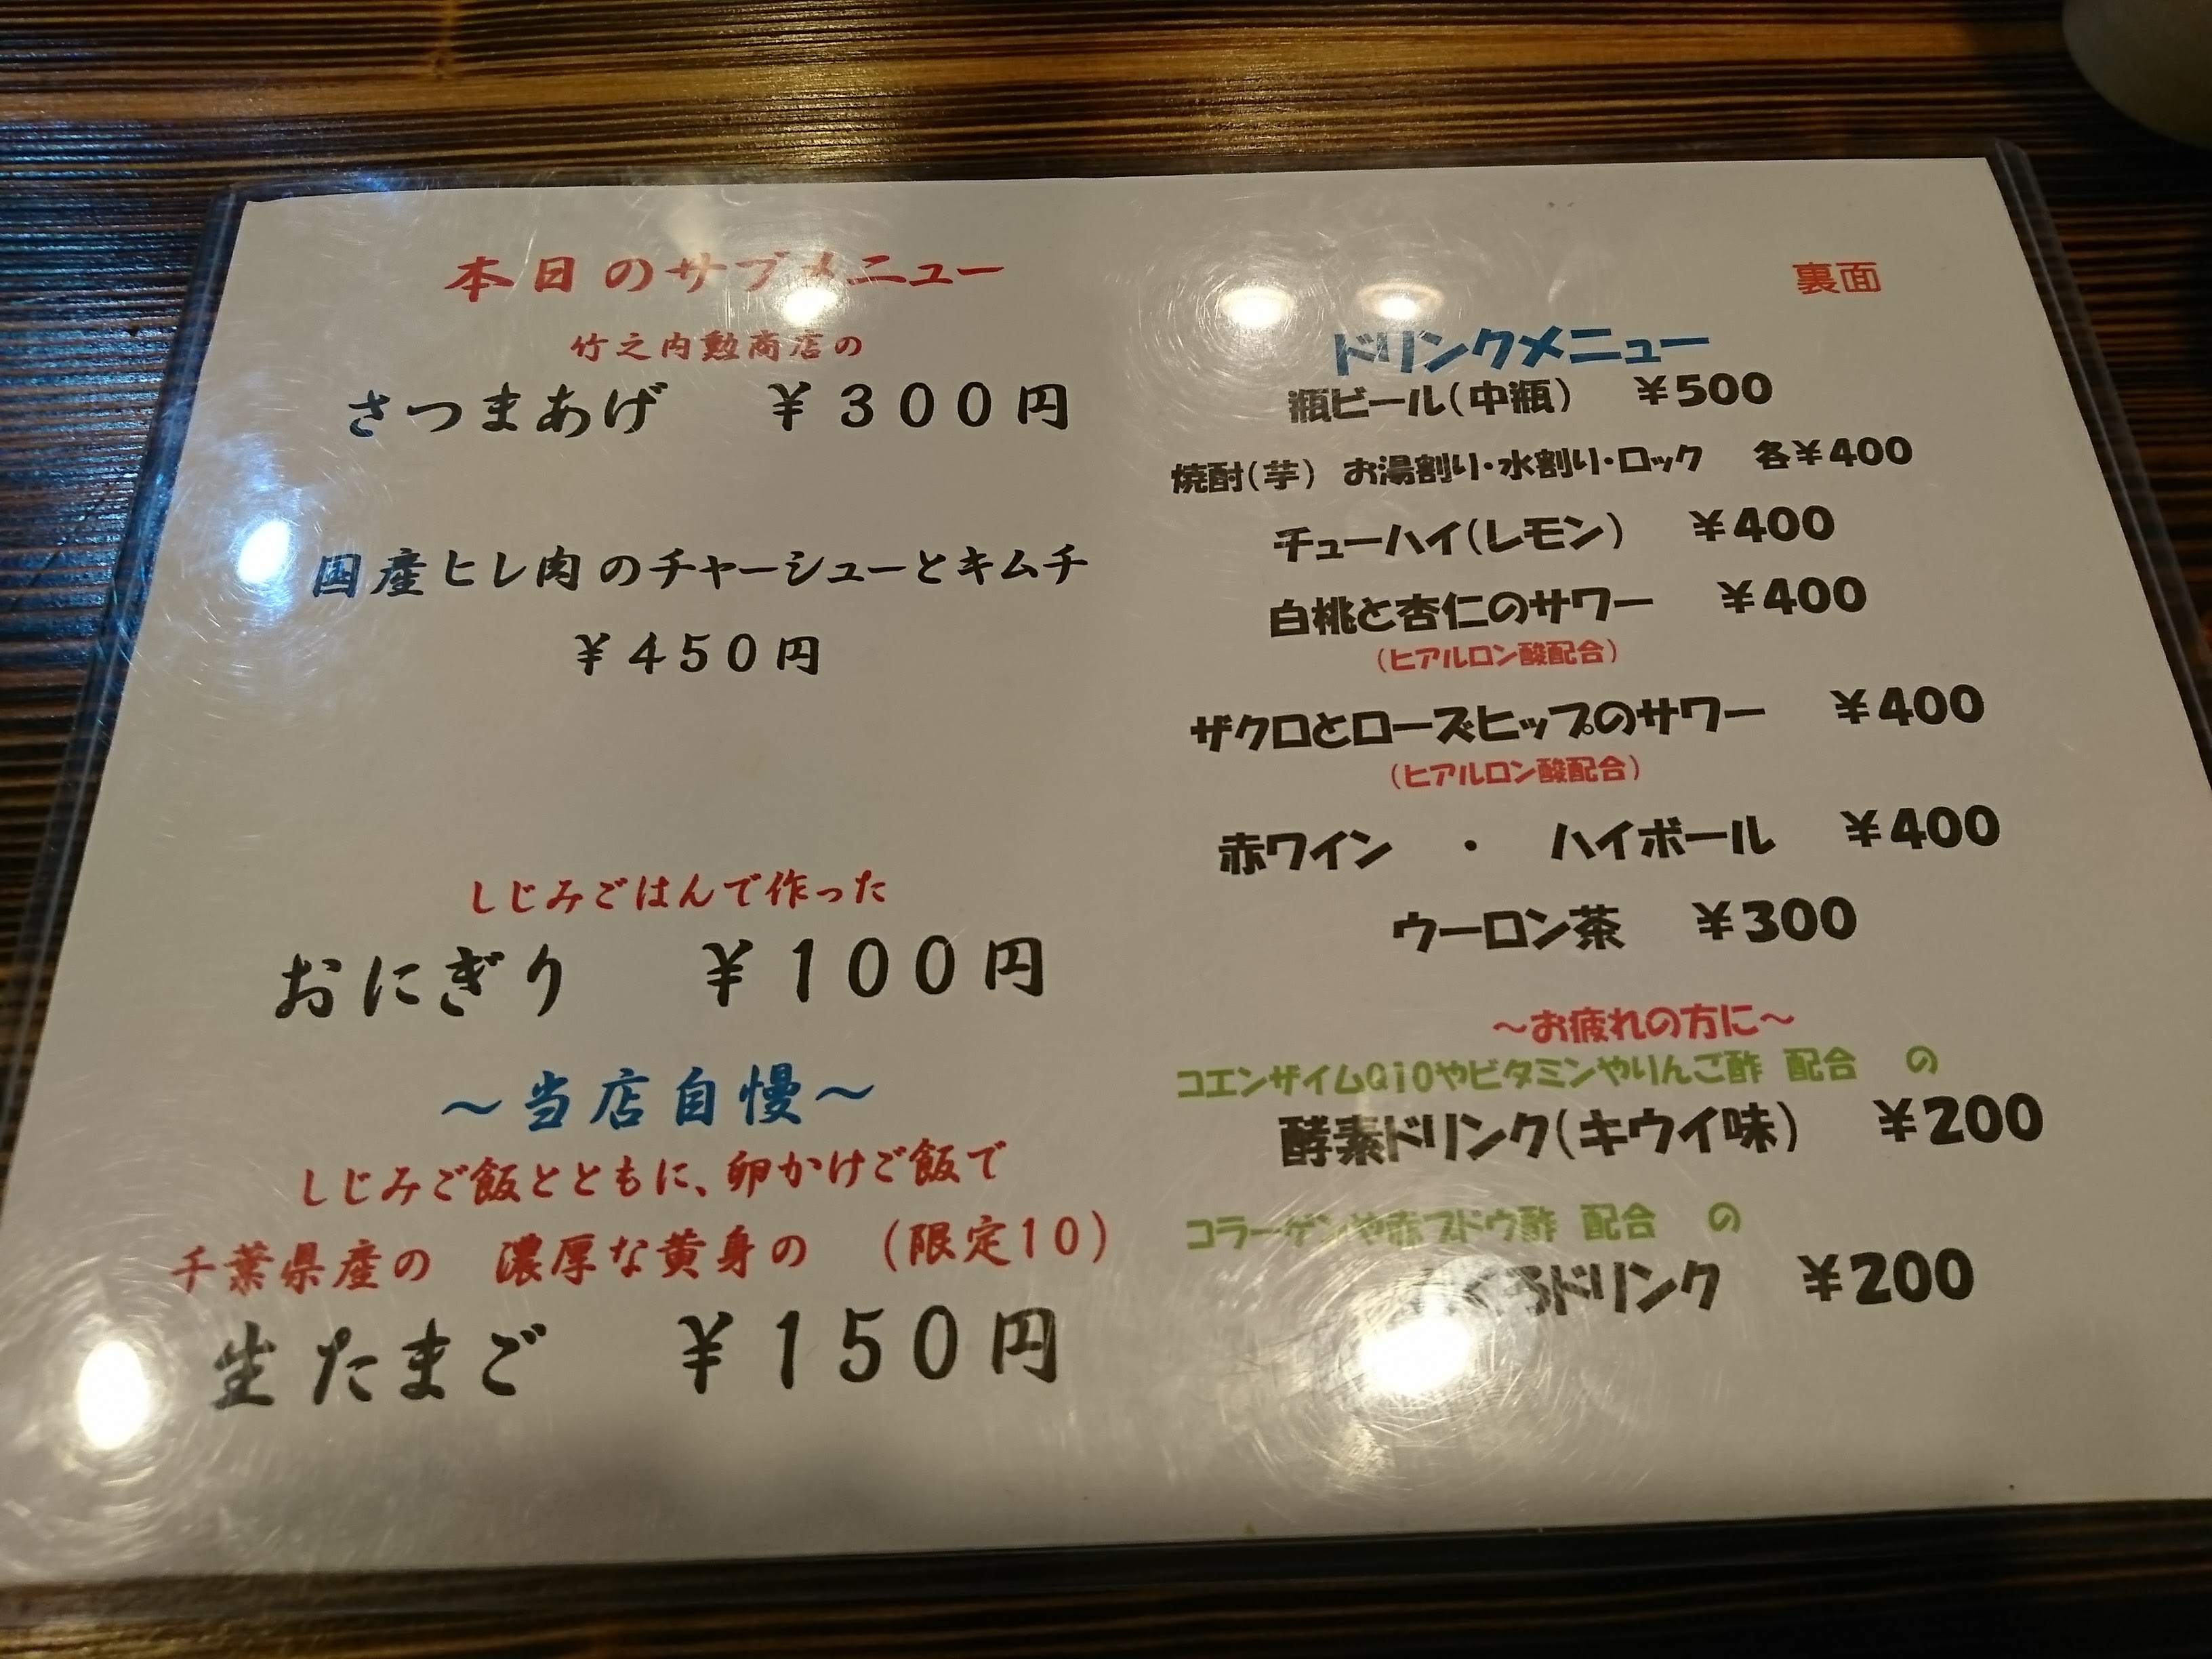 本日のサブメニュー
竹之内勲商店の
さつまあげ ￥３００円
国産ヒレ肉のチャーシューとキムチ
￥４５０円
しじみごはんで作った
おにぎり ￥１００円
～当店自慢～
しじみご飯とともに、卵かけご飯で
千葉県産の 濃厚な黄身の （限定10）
生たまご ￥１５０円
裏面
ドリンクメニュー
瓶ビール（中瓶） ￥500
焼酎（芋） お湯割り・水割り・ロック 各￥400
チューハイ（レモン） ￥400
白桃と杏仁のサワー ￥400
（ヒアルロン酸配合）
ザクロとローズヒップのサワー ￥400
（ヒアルロン酸配合）
赤ワイン ・ ハイボール ￥400
ウーロン茶 ￥300
～お疲れの方に～
コエンザイムQ10やビタミンやりんご酢 配合 の
酵素ドリンク（キウイ味） ￥200
コラーゲンや赤ブドウ酢 配合 の
ドリンク ￥200